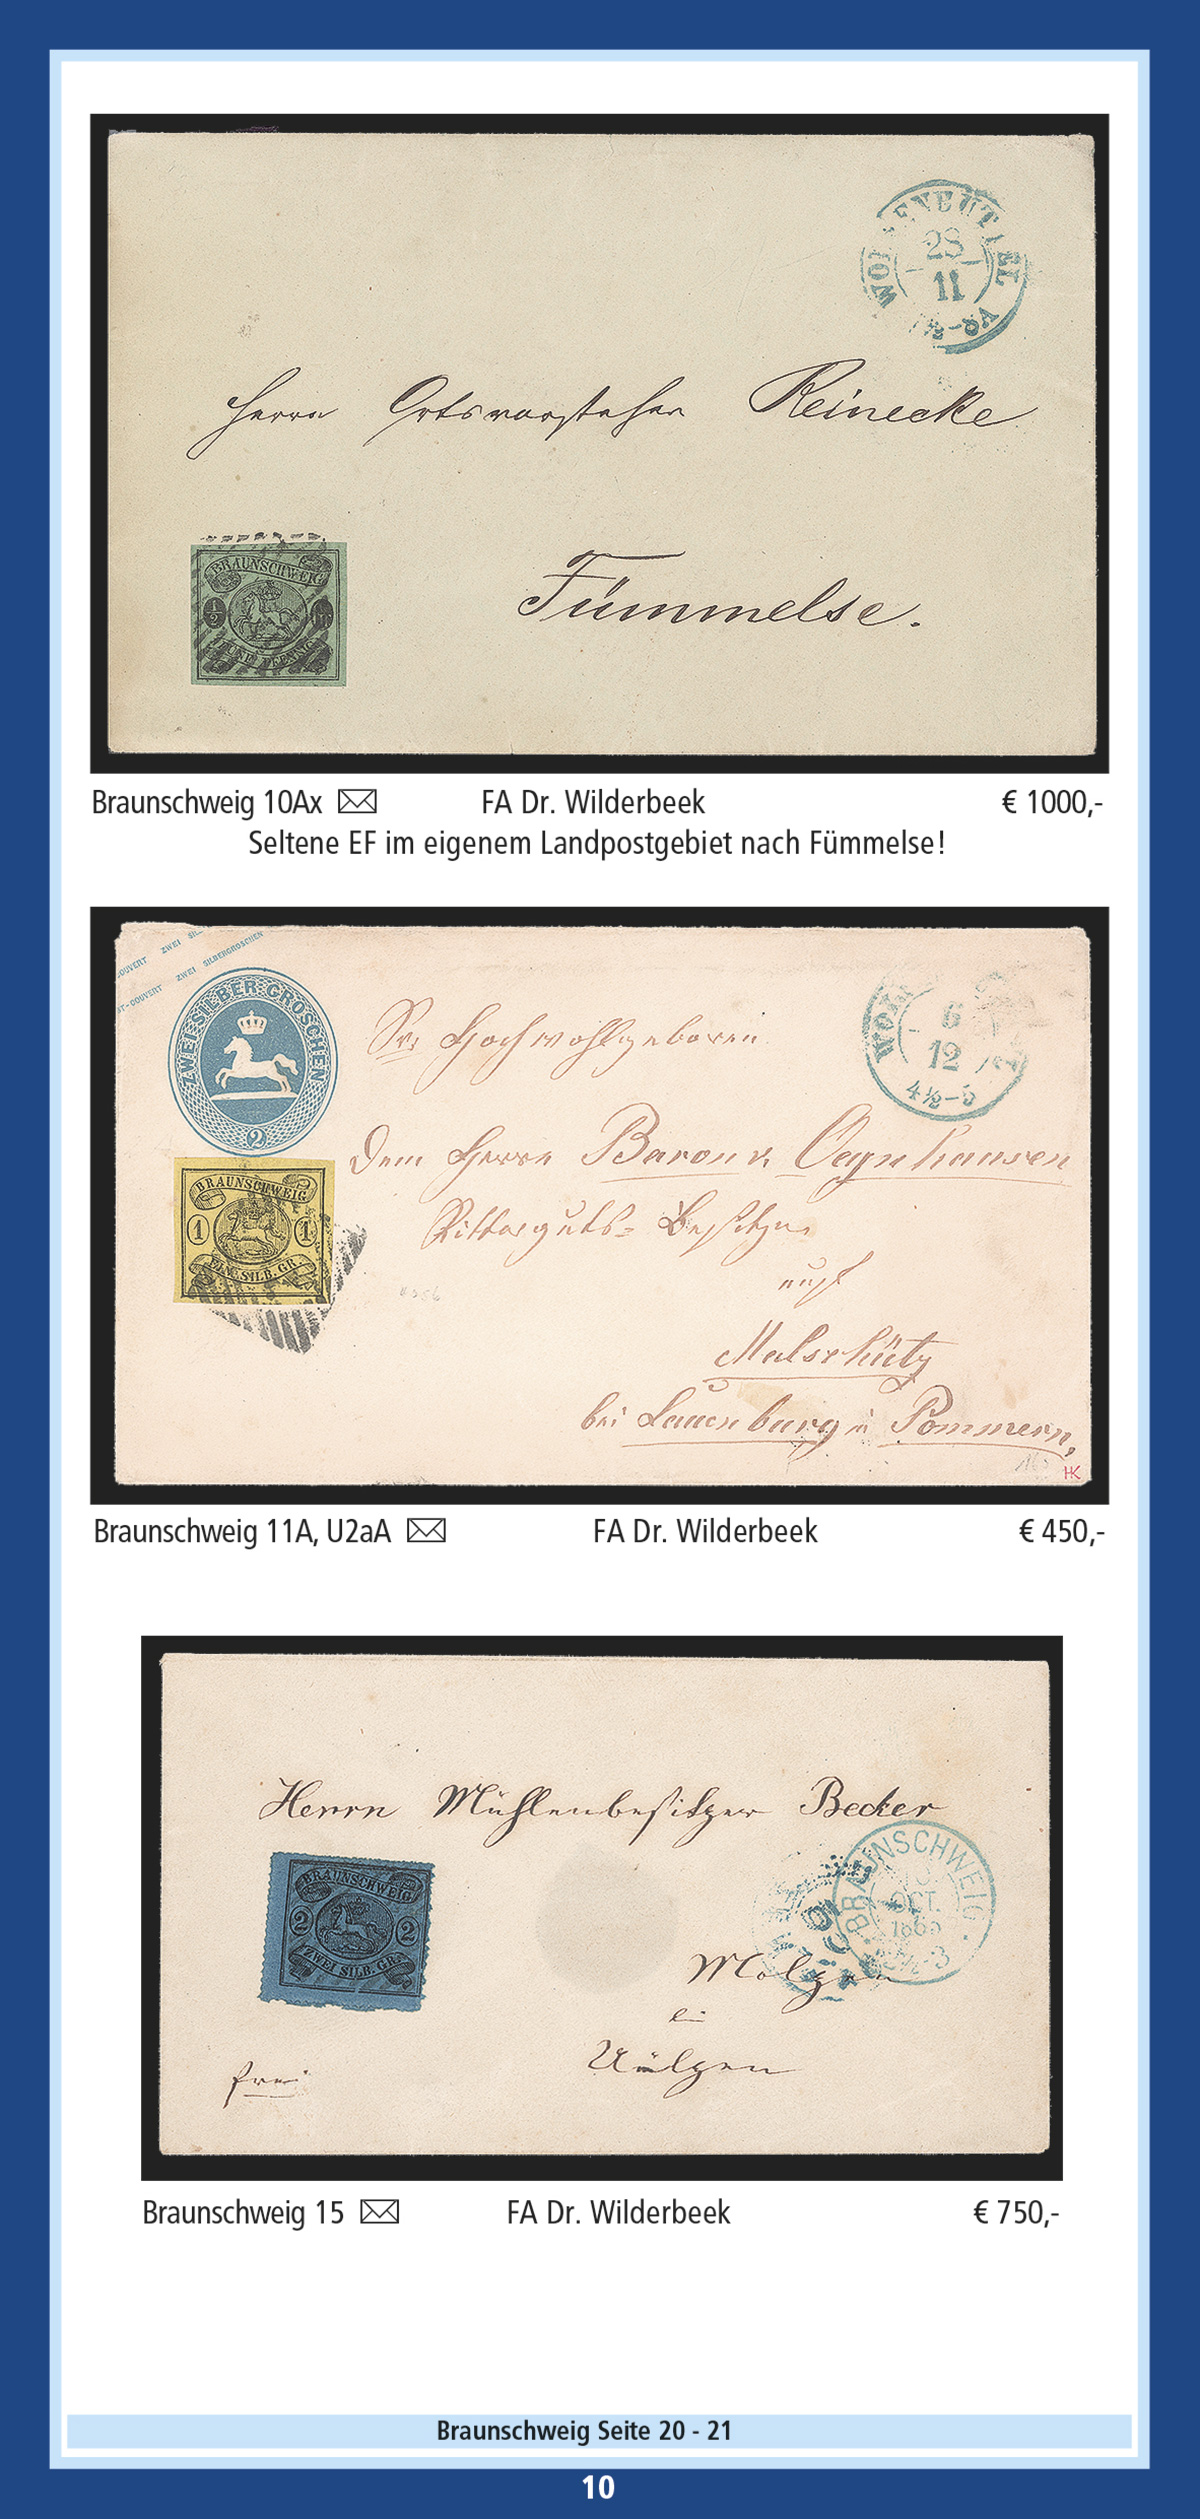 WOLFENBÜTTEL
28
11
Herrn Ortsvorsteher Reinecke
Fümmelse.
BRAUNSCHWEIG
1/2
FÜNF PFENNIG
Braunschweig 10Ax FA Dr. Wilderbeek € 1000,-
Seltene EF im eigenem Landpostgebiet nach Fümmelse!
COUVERT ZWEI SIL
ST-COUVERT ZWEI SILBERGROSCHEN
ZWEI SILBER-GROSCHEN
2
WOL
6
12
4½-5
Sr. Hochwohlgeboren
Dem Herrn Baron v. Oeynhausen
Ritterguts-Besitzer
auf
Malschütz
bei Lauenburg in Pommern,
HK
BRAUNSCHWEIG
1 1
EIN SILB. GR.
Braunschweig 11A, U2aA FA Dr. Wilderbeek € 450,-
Herrn Mühlenbesitzer Becker
BRAUNSCHWEIG
OCT.
1865
2½-3
BRAUNSCHWEIG
2 2
ZWEI SILB. GR.
Molzen
bei
Uelzen
frei
Braunschweig 15 FA Dr. Wilderbeek € 750,-
Braunschweig Seite 20 - 21
10